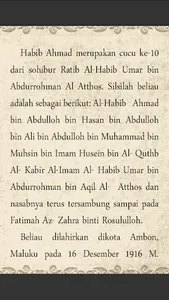 Habib Ahmad merupakan cucu ke-10
dari sohibur Ratib Al-Habib Umar bin
Abdurrohman Al Atthos. Silsilah beliau
adalah sebagai berikut: Al-Habib Ahmad
bin Abdulloh bin Hasan bin Abdulloh
bin Ali bin Abdulloh bin Muhammad bin
Muhsin bin Imam Husein bin Al- Quthb
Al- Kabir Al-Imam Al- Habib Umar bin
Abdurrohman bin Aqil Al- Atthos dan
nasabnya terus tersambung sampai pada
Fatimah Az- Zahra binti Rosululloh.
Beliau dilahirkan dikota Ambon,
Maluku pada 16 Desember 1916 M.